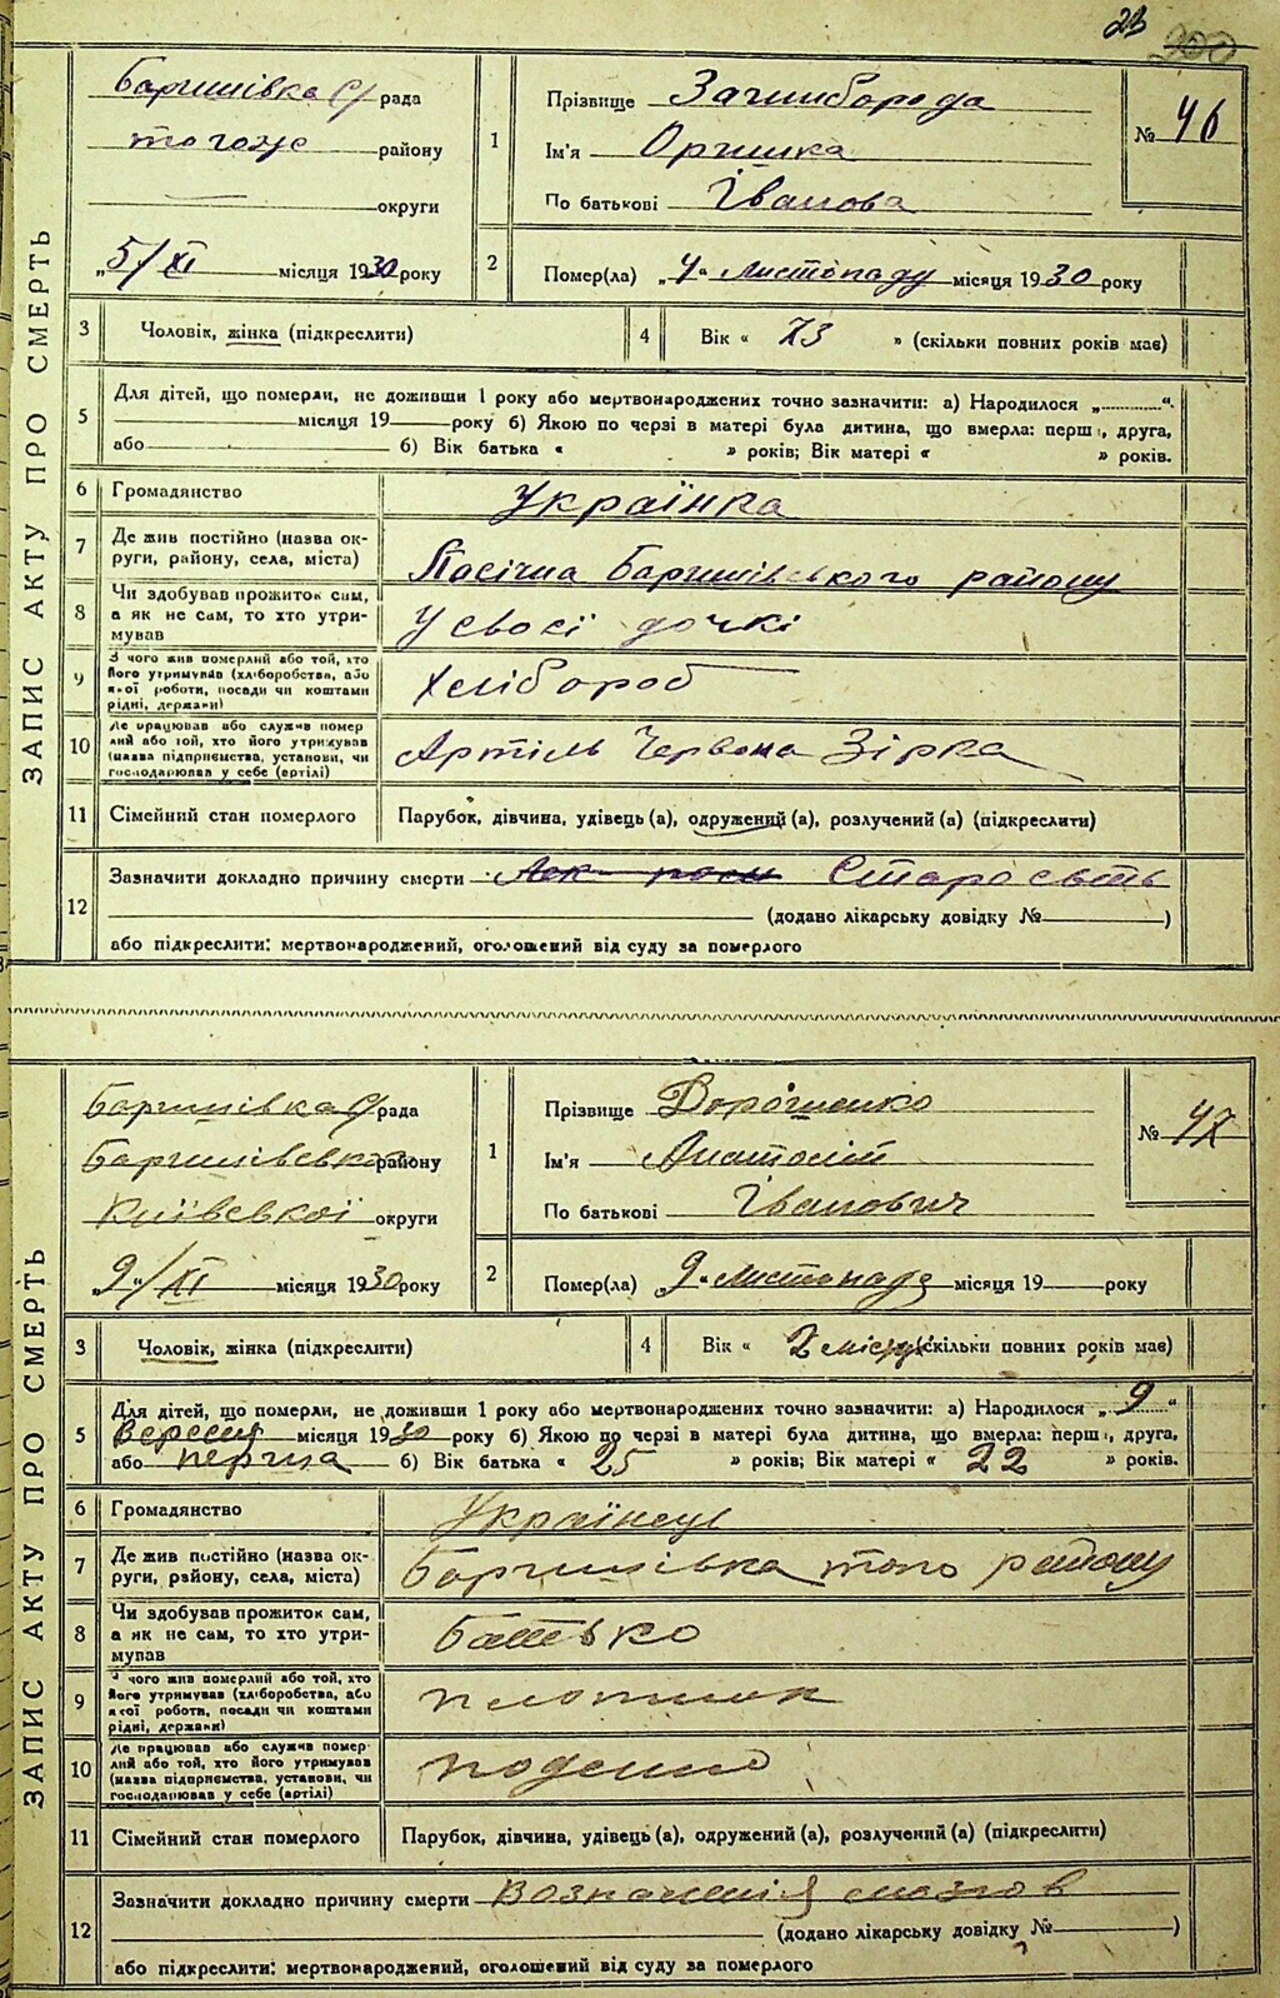 23
200
ЗАПИС АКТУ ПРО СМЕРТЬ
Баришівка с/ рада
того же району
округи
„5/XI місяця 1930 року
1
Прізвище Загниборода
Ім'я Оришка
По батькові Іванова
№ 46
2
Помер(ла) „4“ Листопаду місяця 1930 року
3 Чоловік, жінка (підкреслити)
4 Вік « 73 » (скільки повних років має)
5 Для дітей, що померли, не доживши 1 року або мертвонароджених точно зазначити: а) Народилося „ “
місяця 19 року б) Якою по черзі в матері була дитина, що вмерла: перш , друга,
або б) Вік батька « » років; Вік матері « » років.
6 Громадянство Українка
7 Де жив постійно (назва округи, району, села, міста) Пасічна Баришівського району
8 Чи здобував прожиток сам, а як не сам, то хто утримував У своєї дочкі
9 З чого жив померлий або той, хто його утримував (хліборобства, або якої роботи, посади чи коштами рідні, держави) Хлібороб
10 Де працював або служив померлий або той, хто його утримував (назва підприємства, установи, чи господарював у себе (артілі) Артіль Червона Зірка
11 Сімейний стан померлого Парубок, дівчина, удівець (а), одружений (а), розлучений (а) (підкреслити)
12 Зазначити докладно причину смерти Старость
(додано лікарську довідку № )
або підкреслити: мертвонароджений, оголошений від суду за померлого
ЗАПИС АКТУ ПРО СМЕРТЬ
Баришівка с/ рада
Баришівсько району
Київської округи
„9“/XI місяця 1930 року
1
Прізвище Дорошенко
Ім'я Анатолій
По батькові Іванович
№ 47
2
Помер(ла) „9“ листопада місяця 19 року
3 Чоловік, жінка (підкреслити)
4 Вік « 2 місяці скільки повних років має)
5 Для дітей, що померли, не доживши 1 року або мертвонароджених точно зазначити: а) Народилося „9“
Вересня місяця 1930 року б) Якою по черзі в матері була дитина, що вмерла: перш , друга,
або перша б) Вік батька « 25 » років; Вік матері « 22 » років.
6 Громадянство Українець
7 Де жив постійно (назва округи, району, села, міста) Баришівка того району
8 Чи здобував прожиток сам, а як не сам, то хто утримував Батько
9 З чого жив померлий або той, хто його утримував (хліборобства, або якої роботи, посади чи коштами рідні, держави) плотник
10 Де працював або служив померлий або той, хто його утримував (назва підприємства, установи, чи господарював у себе (артілі) поденно
11 Сімейний стан померлого Парубок, дівчина, удівець (а), одружений (а), розлучений (а) (підкреслити)
12 Зазначити докладно причину смерти мозгов
(додано лікарську довідку № )
або підкреслити: мертвонароджений, оголошений від суду за померлого